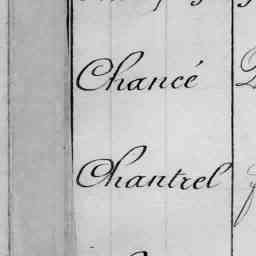 Chancé
Chantrel